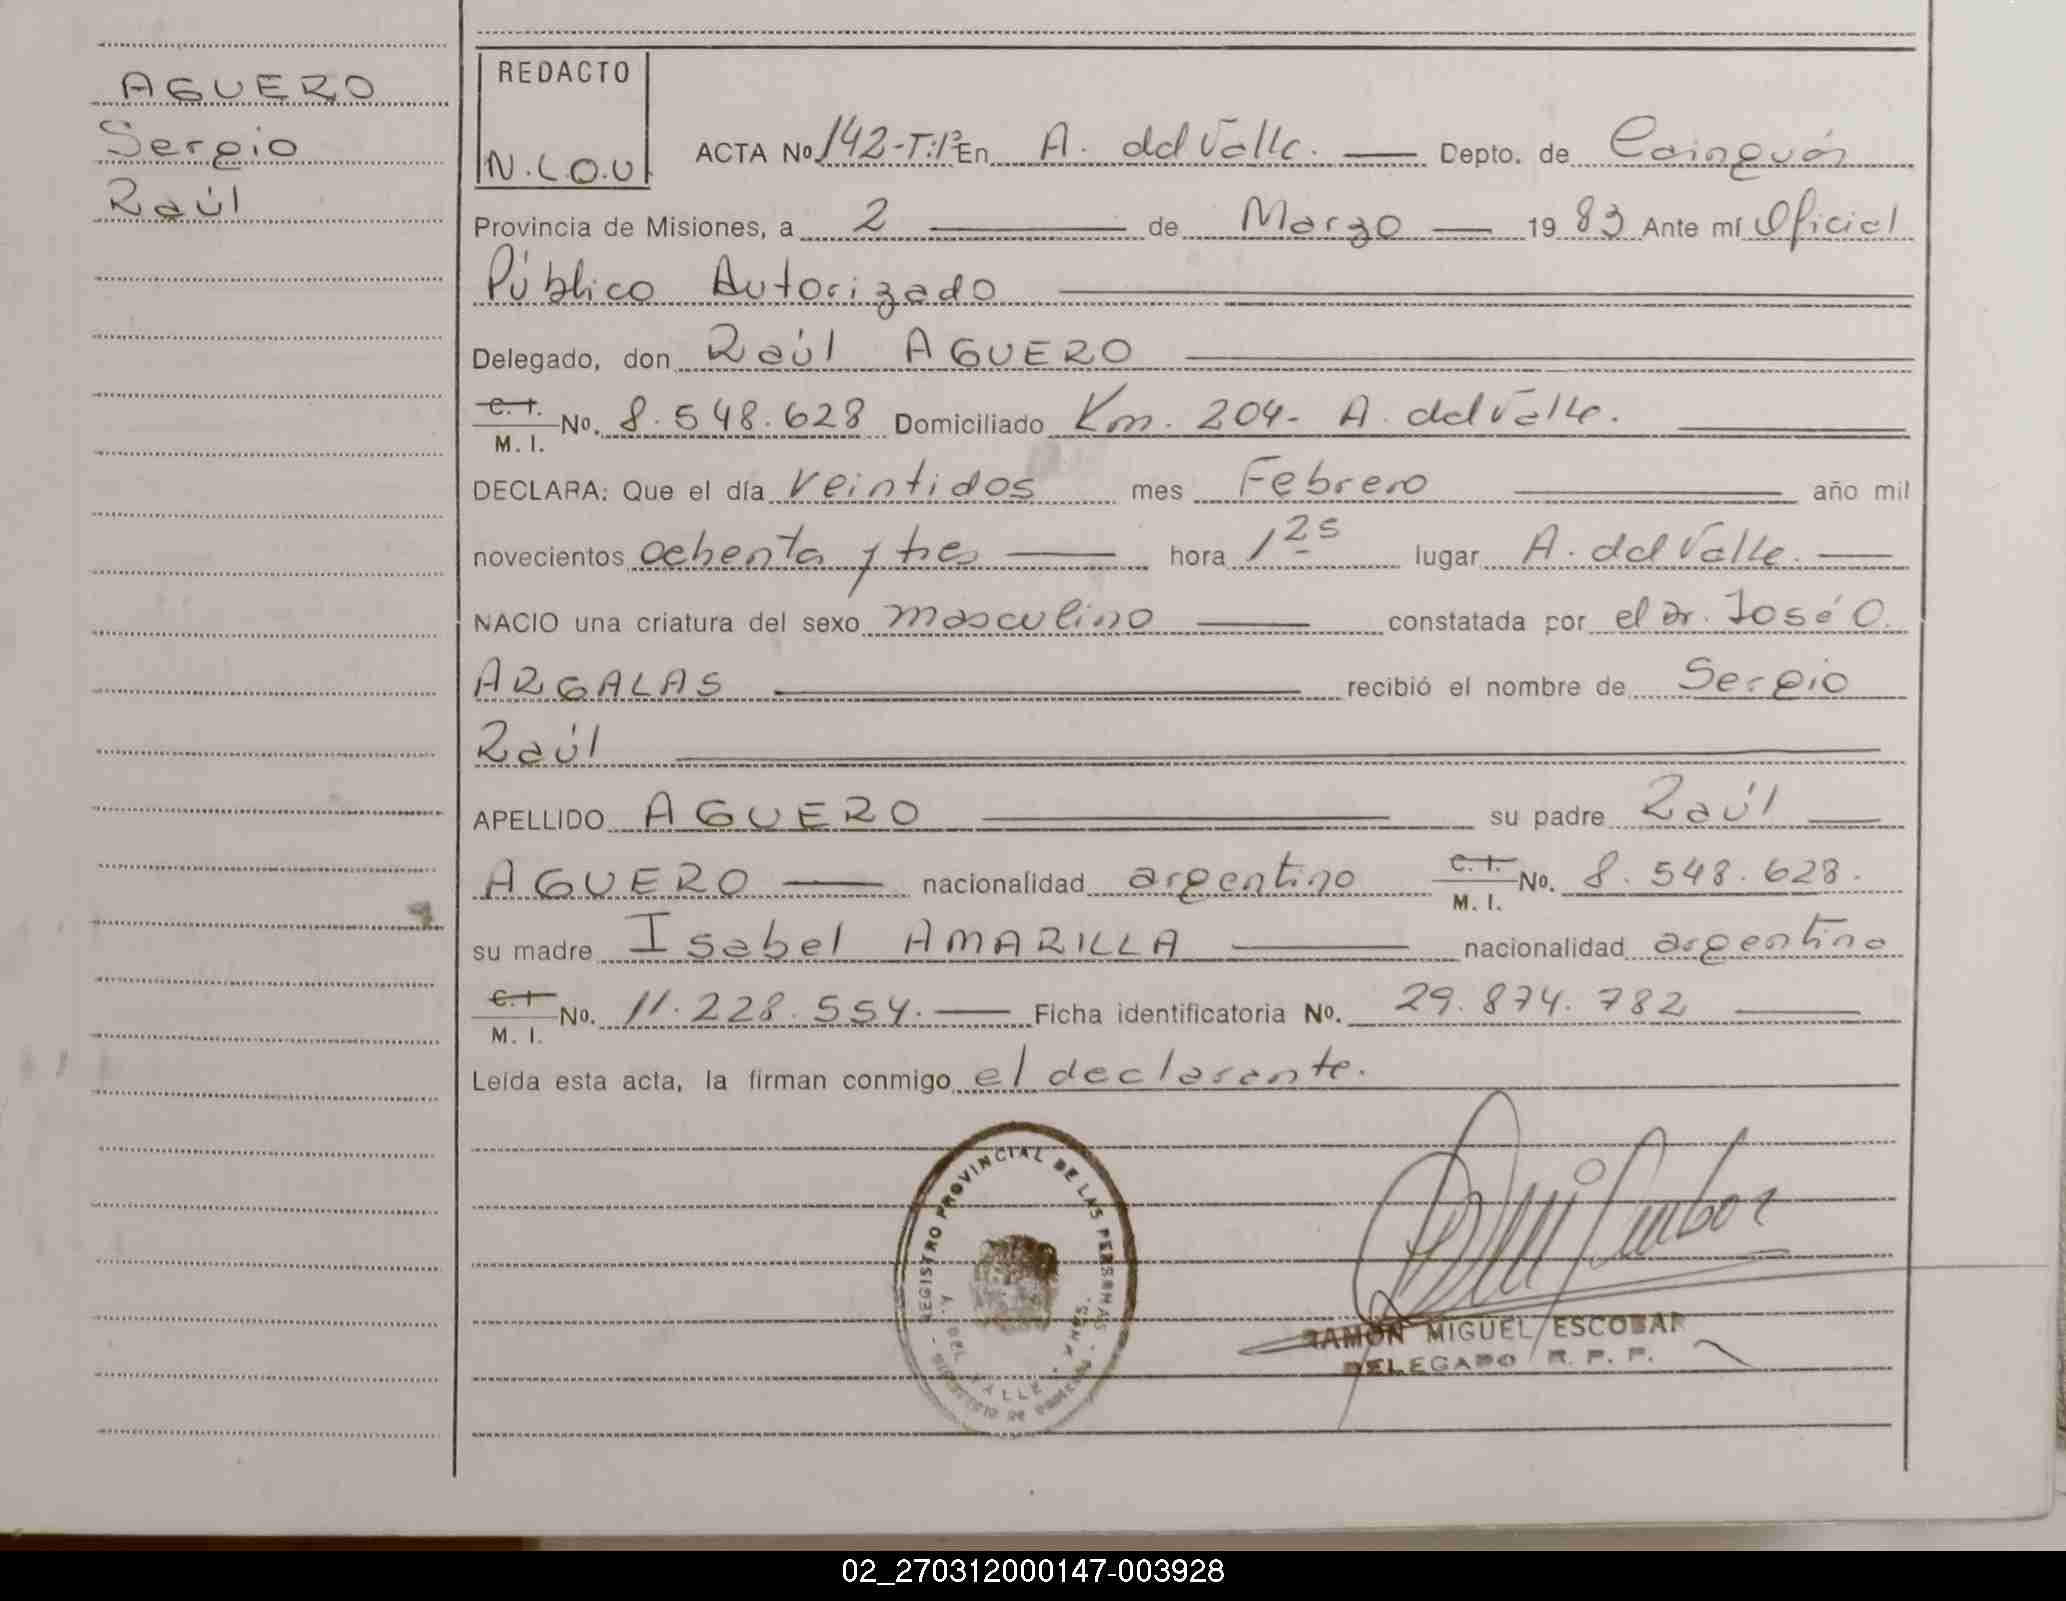 AGUERO
Sergio
Raúl
REDACTO
N.L.O.U
ACTA No 142-T:1º En A. del Valle. Depto. de Cainguás
Provincia de Misiones, a 2 de Marzo 1983 Ante mí Oficial
Público Autorizado
Delegado, don Raúl AGUERO
C. I. M. I. No. 8.548.628 Domiciliado Km. 204- A. del Valle.
DECLARA: Que el día veintidos mes Febrero año mil
novecientos ochenta y tres hora 1 25 lugar A. del Valle.
NACIO una criatura del sexo masculino constatada por el Dr. José O.
ARGALAS recibió el nombre de Sergio
Raúl
APELLIDO AGUERO su padre Raúl
AGUERO nacionalidad argentino C. I. M. I. No. 8.548.628.
su madre Isabel AMARILLA nacionalidad argentina
C. I. M. I. No. 11.228.554. Ficha identificatoria No. 29.874.782
Leída esta acta, la firman conmigo el declarante.
REGISTRO PROVINCIAL DE LAS PERSONAS
A. DEL VALLE
RAMON MIGUEL ESCOBAR
DELEGADO R. P. P.
02_270312000147-003928